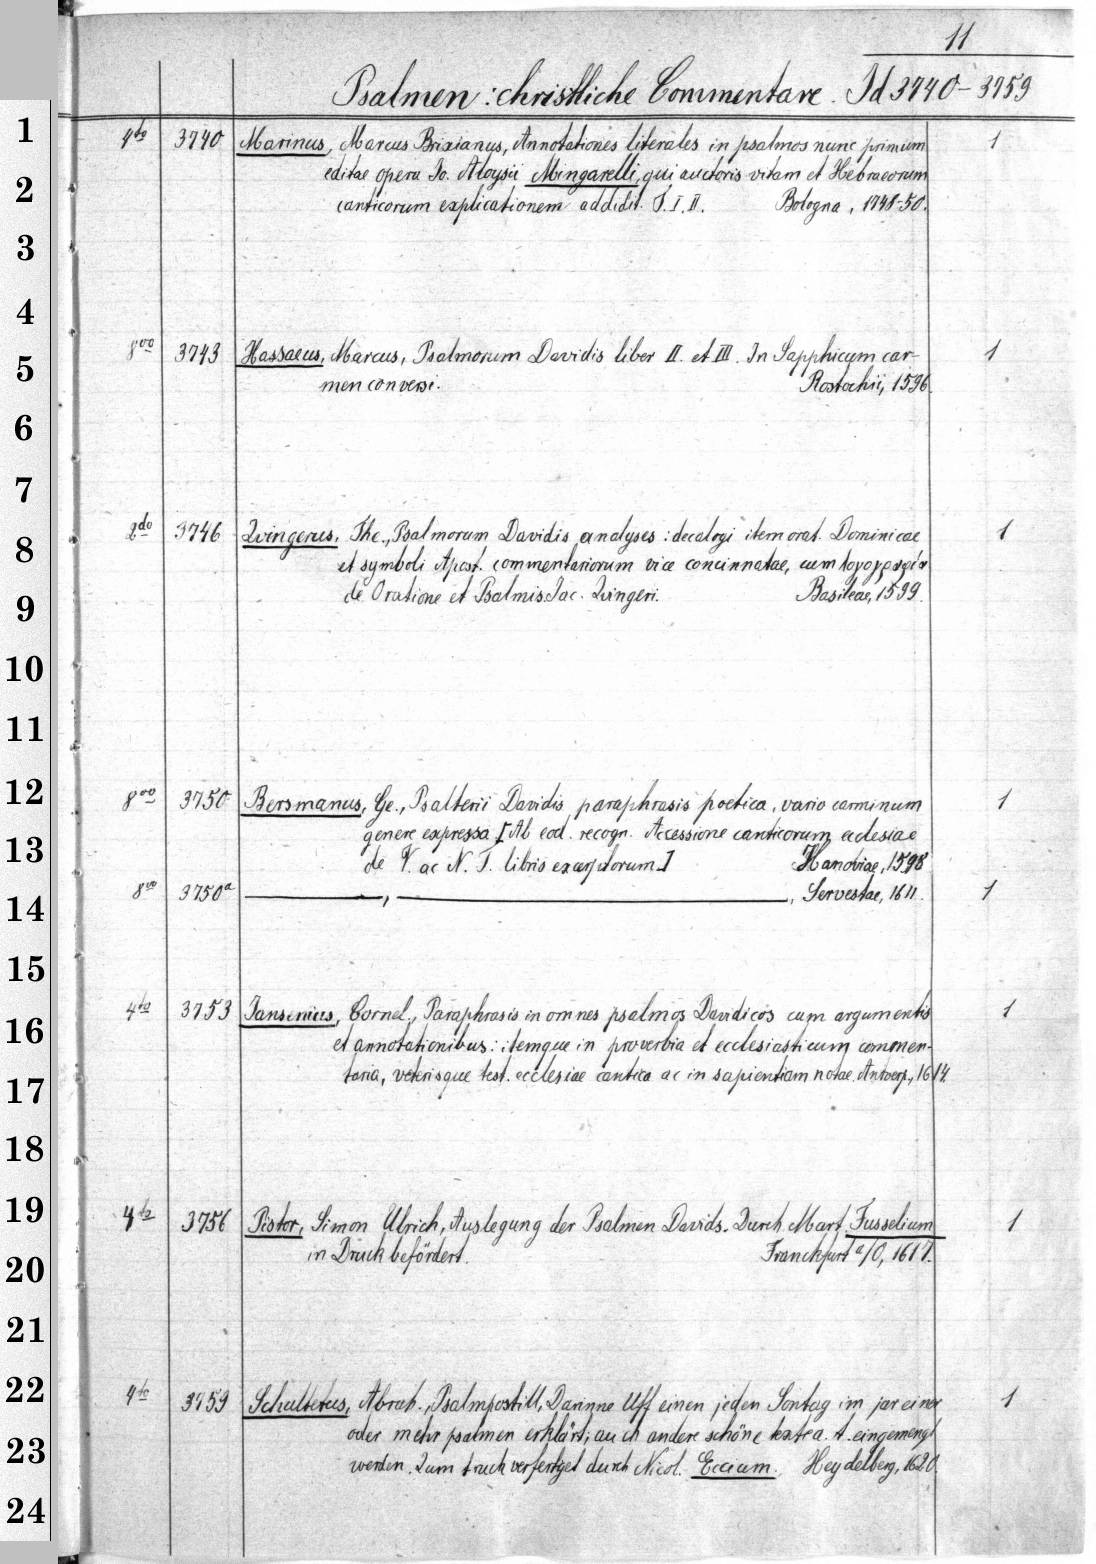 11
Psalmen: christliche Commentare. Id 3740-3759
1
4to 3740 Marinus, Marcus Brixianus, Annotationes literales in psalmos nunc primum 1
2
editae opera Jo. Aloysii Mingarelli, qui auctoris vitam et Hebraeorum
canticorum explicationem addidit. T. I. II. Bologna, 1748-50.
3
4
8vo 3743 Hassaeus, Marcus, Psalmorum Davidis liber II. et III. In Sapphicum car- 1
5
men conversi. Rostochii, 1596.
6
7
2do 3746 Zvingerus, The., Psalmorum Davidis analyses: decalogi item orat. Dominicae 1
8
et symboli Apost. commentariorum vice concinnatae, cum
de Oratione et Psalmis Jac. Zvingeri. Basileae, 1599.
9
10
11
12
8vo 3750 Bersmanus, Ge., Psalterii Davidis paraphrasis poetica, vario carminum 1
genere expressa [Ab eod. recogn. Accessione canticorum ecclesiae
13
de V. ac N. T. libris excerptorum] Hanoviae, 1598
8vo 3750a ——, ——, Servestae, 1611. 1
14
15
4to 3753 Jansenius, Cornel., Paraphrasis in omnes psalmos Davidicos cum argumentis 1
16
et annotationibus: itemque in proverbia et ecclesiasticum commen-
taria, veterisque test. ecclesiae cantica ac in sapientiam notae. Antwerp., 1614.
17
18
19
4to 3756 Pistor, Simon Ulrich, Auslegung der Psalmen Davids. Durch Mart. Fusselium 1
in Druck befördert. Franckfurt a/O, 1617.
20
21
22
4to 3759 Schultetus, Abrah., Psalmpostill, Darinne Uff einen jeden Sontag im jar einer 1
oder mehr psalmen erklärt; auch andere schöne textea. t. eingemengt
23
werden. Zum truck verfertget durch Nicol. Eccium. Heydelberg, 1620.
24